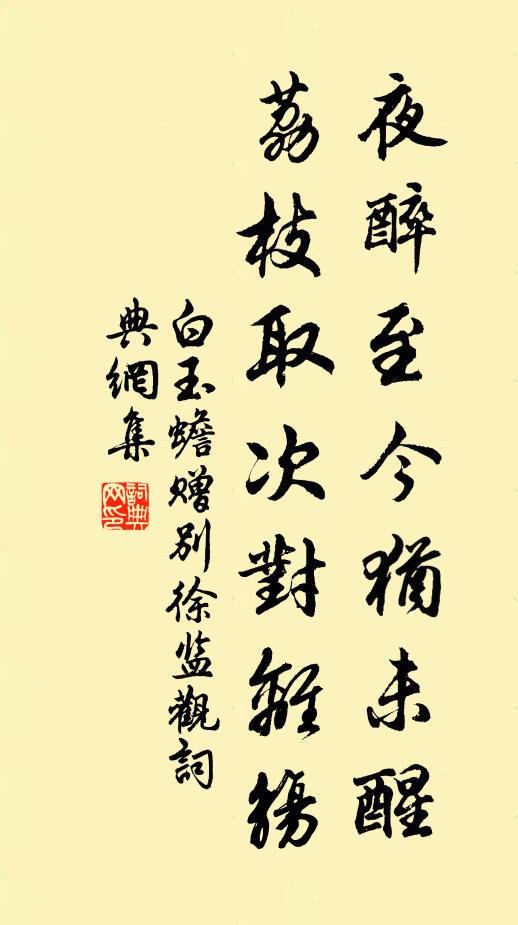 夜醉至今猶未醒
荔枝取次對離觴
白玉蟾贈別徐监觀詞
典網集
詞典
网印